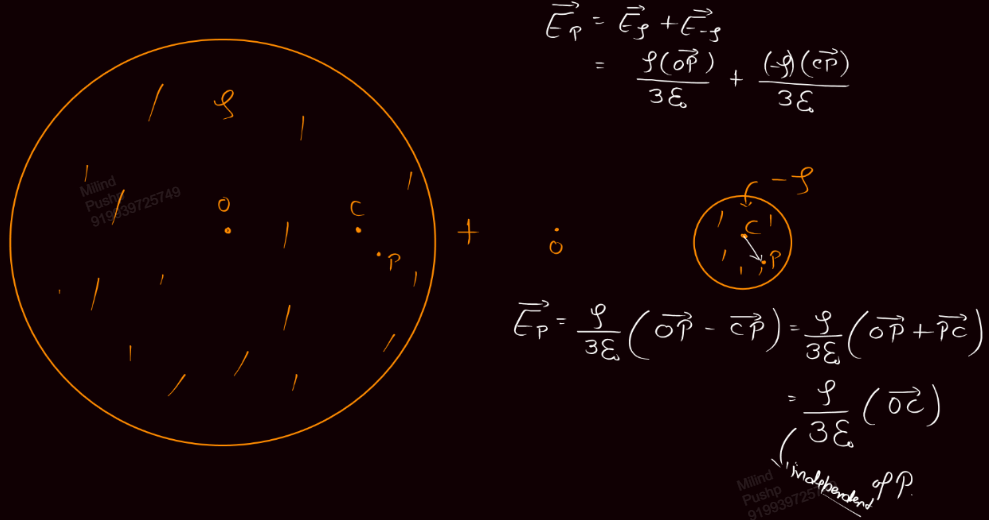 E⃗_P = E⃗_ρ + E⃗_-ρ
= ρ(OP⃗)/3ε₀ + (-ρ)(CP⃗)/3ε₀
ρ
Milind
Pushp
919939725749
O
C
P
+
O
-ρ
C
P
E⃗_P = ρ/3ε₀ (OP⃗ - CP⃗) = ρ/3ε₀ (OP⃗ + PC⃗)
= ρ/3ε₀ (OC⃗)
independent of P.
Milind
Pushp